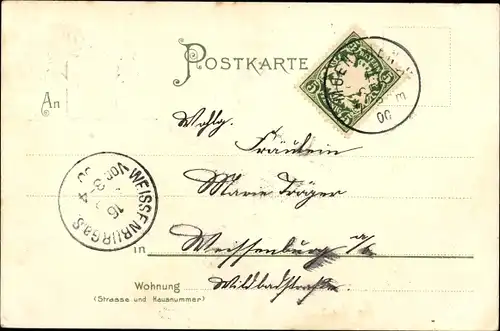 POSTKARTE
An
Wohlg.
Fräulein
Marie Träger
WEISSENBURG a.S.
Vor. 3-4
16
00
in Weissenburg a/S
Wohnung Wildbadstraße
(Strasse und Hausnummer)
5
5
00